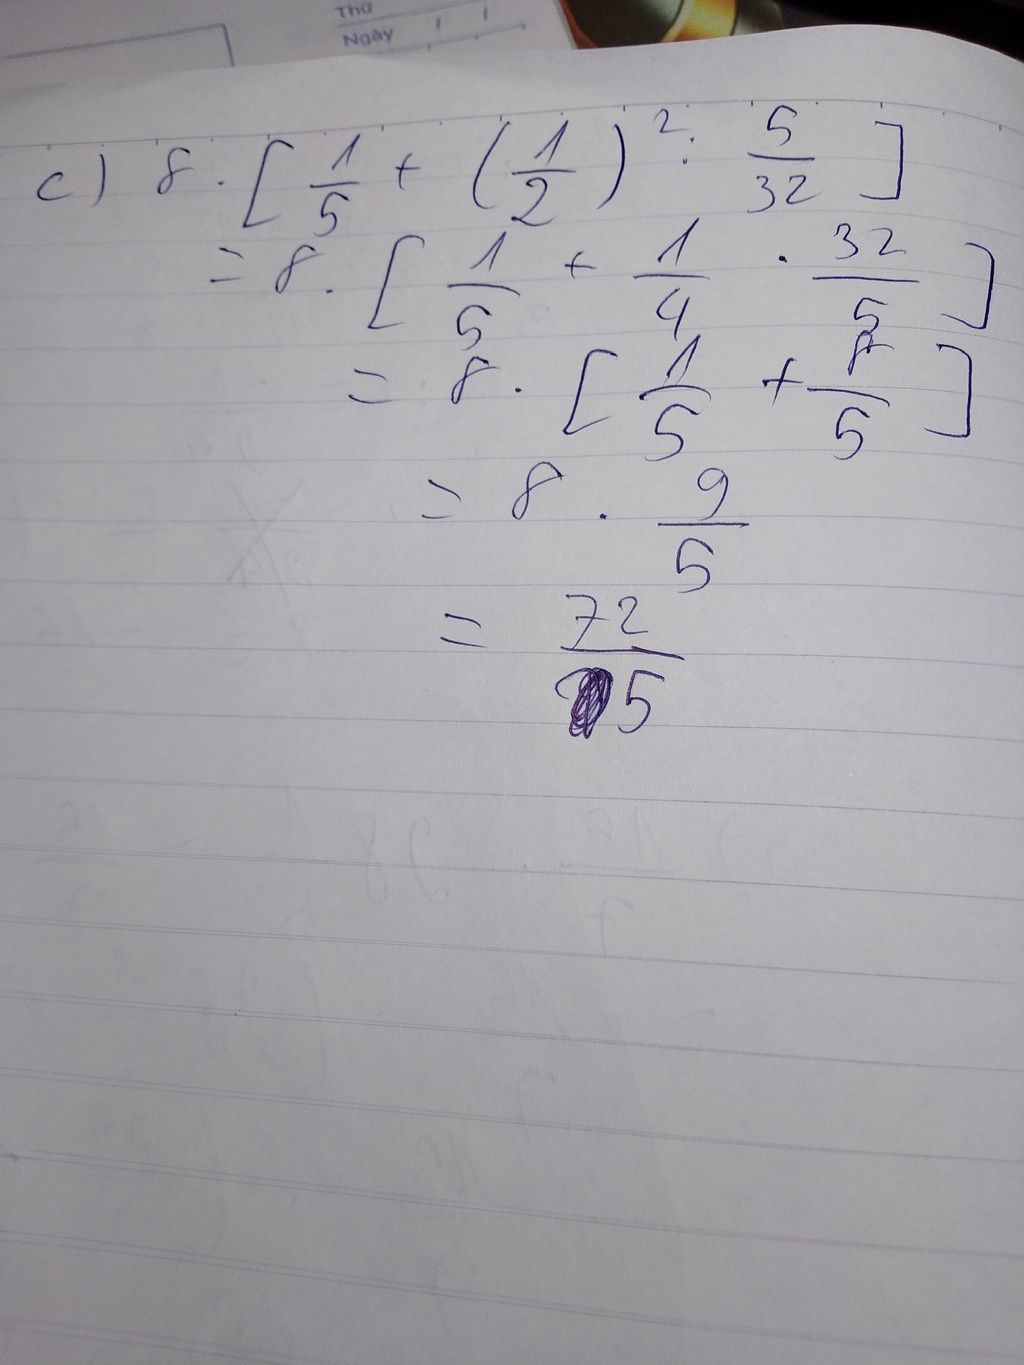 Thứ
Ngày
c) 8 . [ 1/5 + (1/2)² : 5/32 ]
= 8 . [ 1/5 + 1/4 . 32/5 ]
= 8 . [ 1/5 + 8/5 ]
= 8 . 9/5
= 72/5